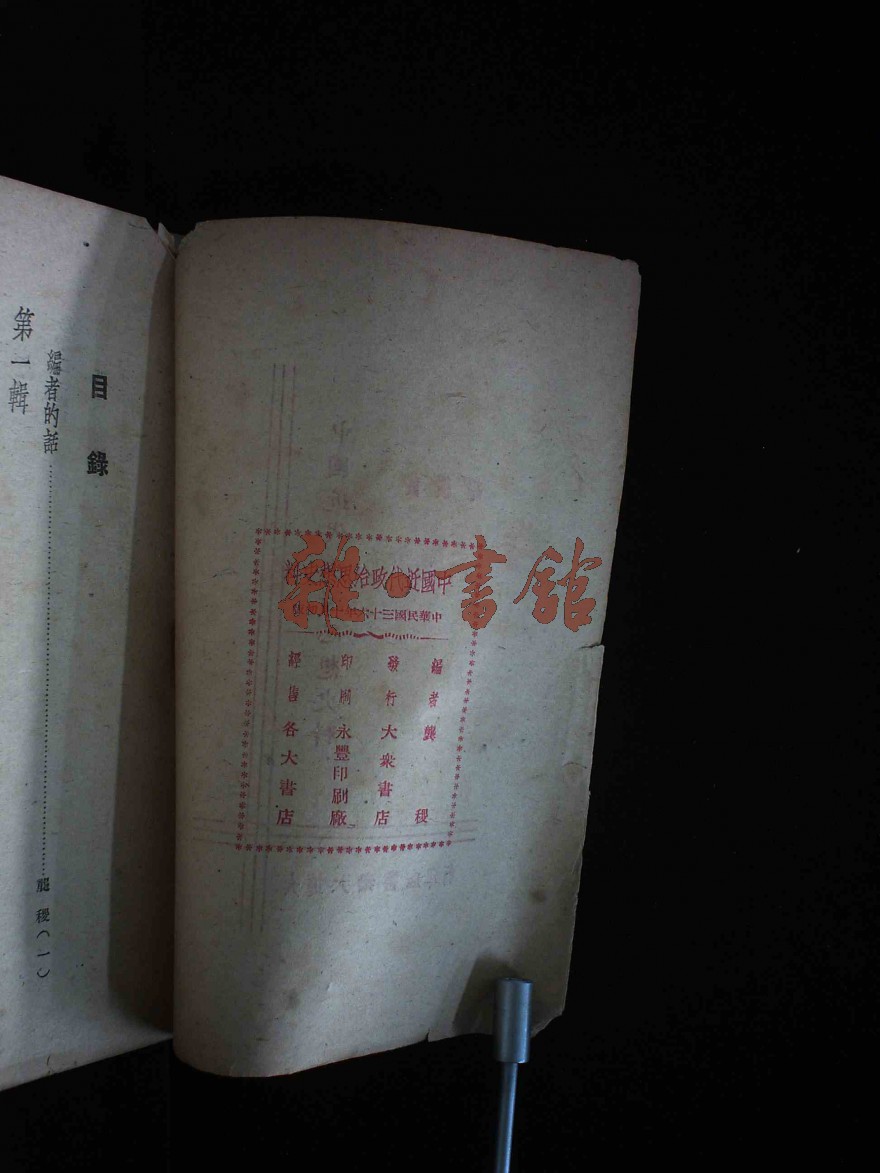 雜·書館
中國近代政治史料
中華民國三十六年
編者 龔稷
發行 大衆書店
印刷 永豐印刷廠
經售 各大書店
目錄
編者的話……稷（一）
第一輯